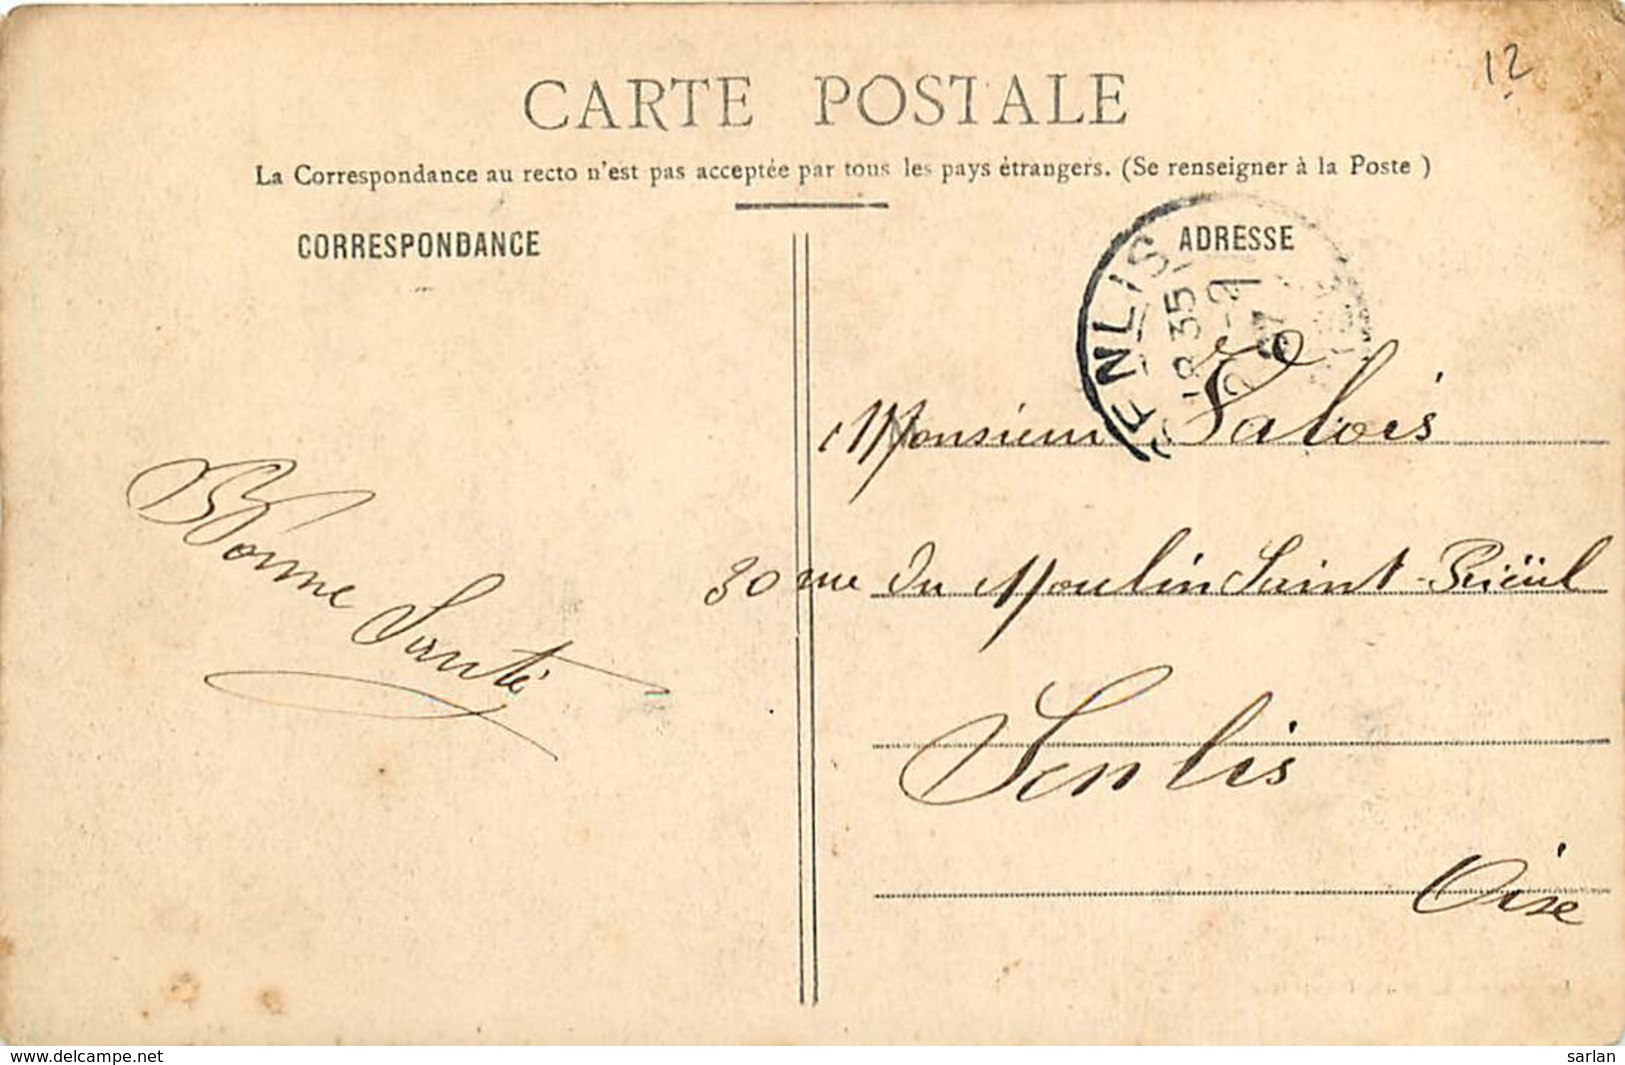 12
CARTE POSTALE
La Correspondance au recto n'est pas acceptée par tous les pays étrangers. (Se renseigner à la Poste )
CORRESPONDANCE
ADRESSE
SENLIS
18 35
Bonne
Santé
Monsieur Valois
30 rue du Moulin Saint-Rieül
Senlis
Oise
www.delcampe.net
sarlan